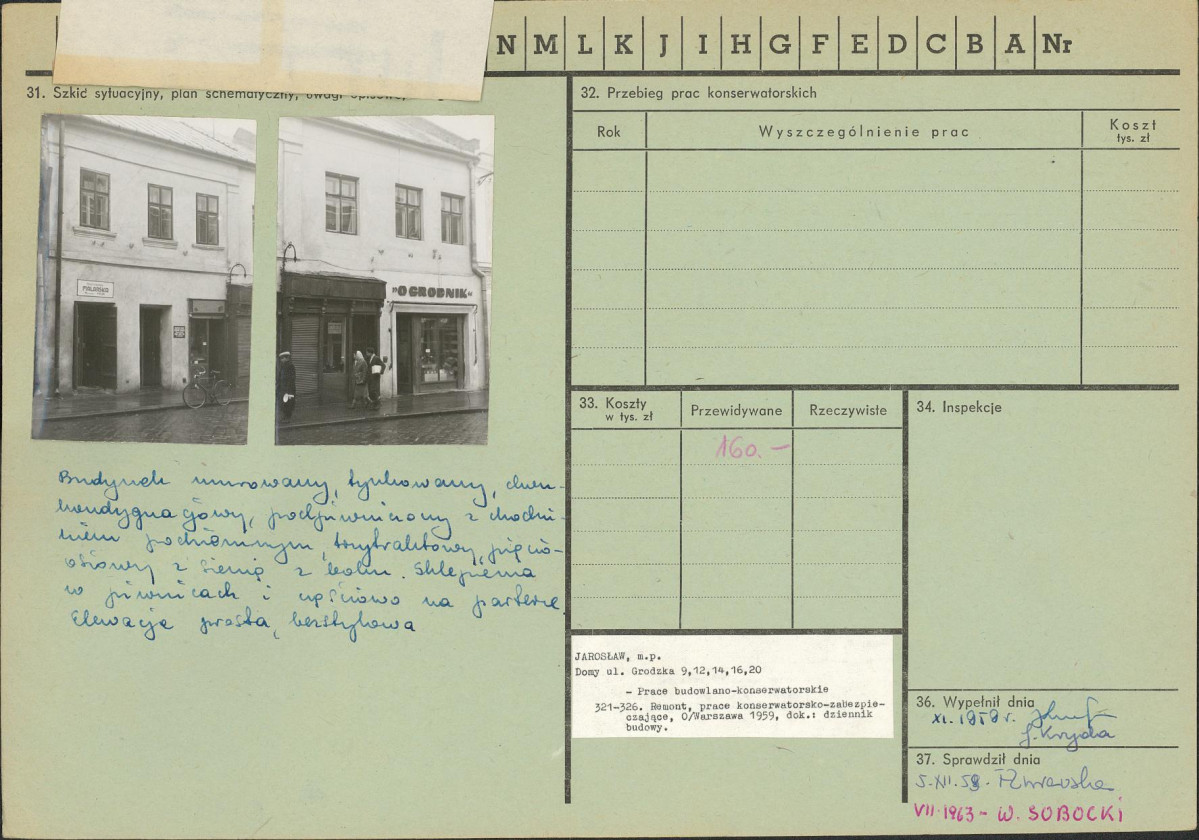 N M L K J I H G F E D C B A Nr
31. Szkic sytuacyjny, plan schematyczny, uwagi opisowe,
MALARSKO
"OGRODNIK"
Budynek murowany, tynkowany, dwu-
kondygnacjowy, podpiwniczony z chodni-
kiem podziemnym, trzytraktowy, pięcio-
osiowy z sienią z boku. Sklepienia
w piwnicach i częściowo na parterze
Elewacja prosta, bezstylowa
32. Przebieg prac konserwatorskich
Rok Wyszczególnienie prac Koszt tys. zł
33. Koszty w tys. zł Przewidywane Rzeczywiste
160.-
34. Inspekcje
JAROSŁAW, m.p.
Domy ul. Grodzka 9,12,14,16,20
- Prace budowlano-konserwatorskie
321-326. Remont, prace konserwatorsko-zabezpie-
czające, O/Warszawa 1959, dok.: dziennik
budowy.
36. Wypełnił dnia
XI. 1959 r.
37. Sprawdził dnia
5.XII.59.
VII.1963 - W. SOBOCKI